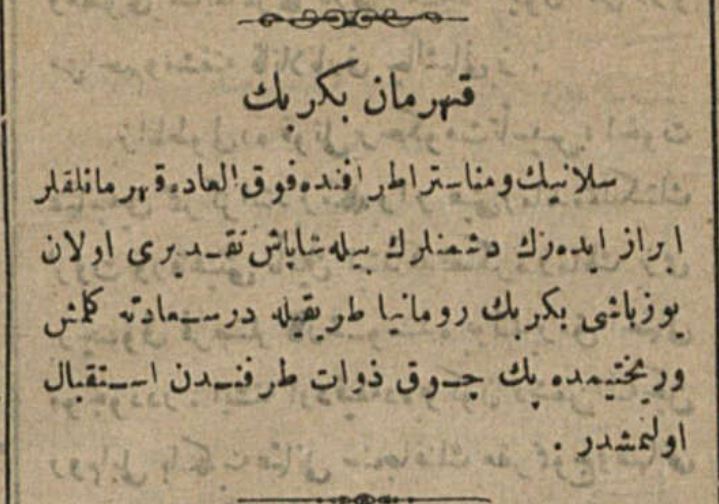 قهرمان بكر بك
سلانيك ومناستر اطرافنده فوق العاده قهرمانلقلر
ابراز ايده‌رك دشمنلرك بيله شاباش تقديرى اولان
يوزباشى بكر بك رومانيا طريقيله درسعادته كلمش
وريختيمده پك چوق ذوات طرفندن استقبال
اولنمشدر .